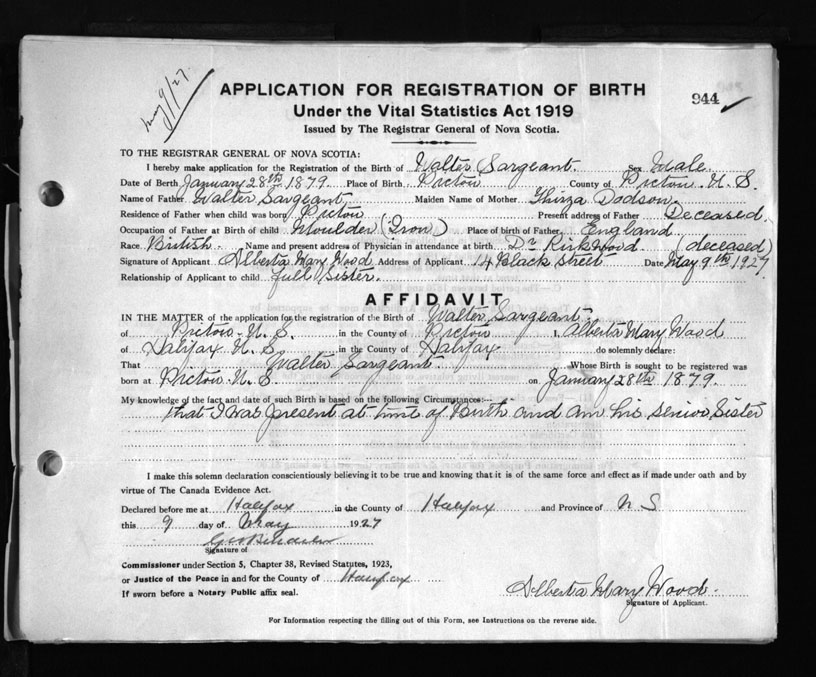 May 9/27.
APPLICATION FOR REGISTRATION OF BIRTH
944
Under the Vital Statistics Act 1919
Issued by The Registrar General of Nova Scotia.
TO THE REGISTRAR GENERAL OF NOVA SCOTIA:
I hereby make application for the Registration of the Birth of Walter Sargeant. Sex Male.
Date of Birth January 28th 1879. Place of Birth Pictou County of Pictou N. S.
Name of Father Walter Sargeant. Maiden Name of Mother Thirza Dodson.
Residence of Father when child was born Pictou Present address of Father Deceased.
Occupation of Father at Birth of child Moulder (Iron) Place of birth of Father England
Race British. Name and present address of Physician in attendance at birth Dr Kirkwood (deceased)
Signature of Applicant Alberta Mary Wood Address of Applicant 14 Black Street Date May 9th 1927
Relationship of Applicant to child full Sister.
AFFIDAVIT
IN THE MATTER of the application for the registration of the Birth of Walter Sargeant.
of Pictou N. S. in the County of Pictou I, Alberta Mary Wood
of Halifax N. S. in the County of Halifax do solemnly declare:
That Walter Sargeant. Whose Birth is sought to be registered was
born at Pictou N. S on January 28th 1879.
My knowledge of the fact and date of such Birth is based on the following Circumstances:—
that I was present at time of Birth and am his senior Sister
I make this solemn declaration conscientiously believing it to be true and knowing that it is of the same force and effect as if made under oath and by
virtue of The Canada Evidence Act.
Declared before me at Halifax in the County of Halifax and Province of N S
this 9 day of May 1927
Signature of
Commissioner under Section 5, Chapter 38, Revised Statutes, 1923,
or Justice of the Peace in and for the County of Halifax
If sworn before a Notary Public affix seal.
Alberta Mary Wood.
Signature of Applicant.
For Information respecting the filling out of this Form, see Instructions on the reverse side.